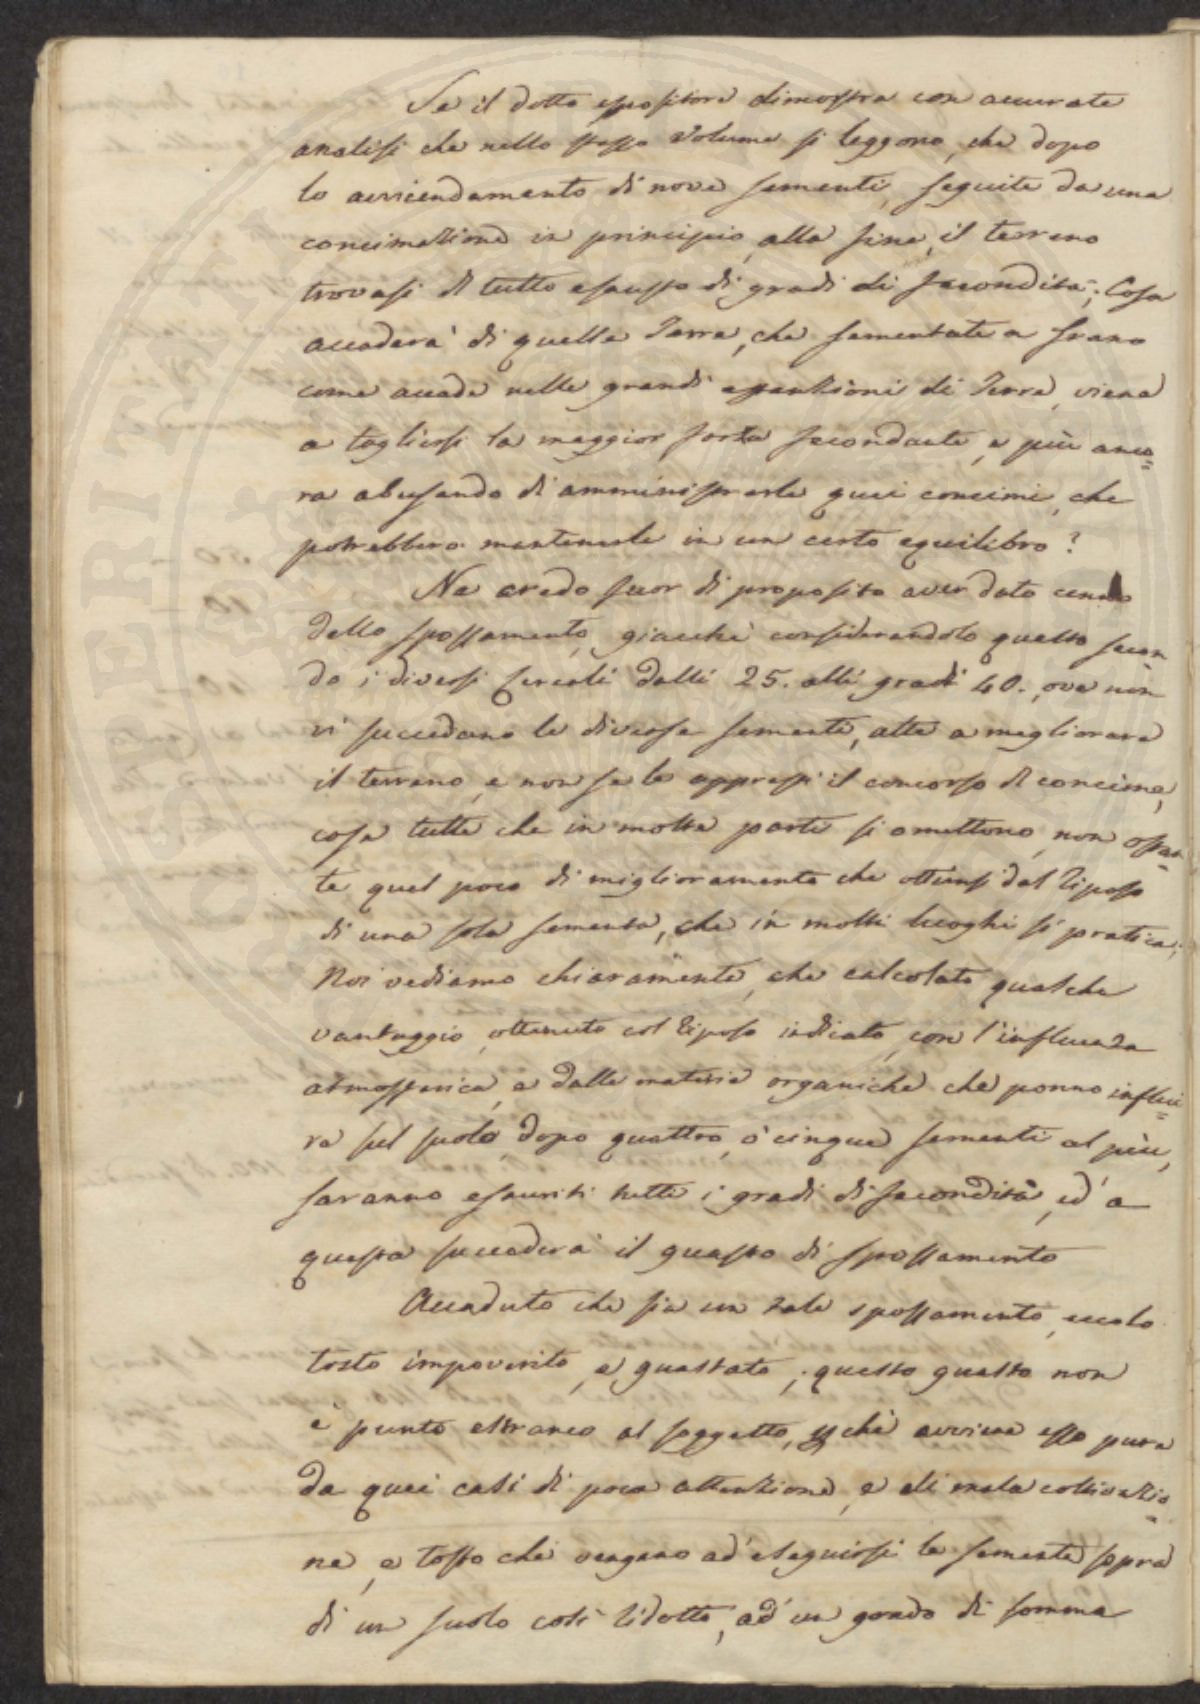 Se il dotto espositore dimostra con accurate
analisi che nello stesso volume si leggono, che dopo
lo avvicendamento di nove sementi, seguite da una
concimazione in principio, alla fine, il terreno
trovasi di tutto esausto di gradi di fecondità; Cosa
accaderà di quelle Terre, che sementate a grano
come accade nelle grandi estensioni di Terre, viene
a togliersi la maggior forza fecondante, e più anco=
ra abusando di amministrarle quei concimi, che
potrebbero mantenerle in un certo equilibro?
Ne credo fuor di proposito aver dato cenno
dello spossamento, giacchè considerandolo questo secon
do i diversi cereali dalli 25. alli gradi 40., ove non
vi succedano le diverse semente, atte a migliorare
il terreno, e non se le appressi il concorso di concime,
cose tutte che in molte parti si omettono, non ostan=
te quel poco di miglioramento che ottiensi dal riposo
di una sola sementa, che in molti luoghi si pratica;
Noi vediamo chiaramente, che calcolato qualche
vantaggio, ottenuto col riposo indicato, con l'influenza
atmosferica, e dalle materie organiche che ponno influi=
re sul suolo, dopo quattro, o cinque sementi al più,
saranno esauriti tutti i gradi di fecondità, ed a
questa succederà il guasto di spossamento
Accaduto che sia un tale spossamento, eccolo
tosto impoverito, e guastato; questo guasto non
è punto estraneo al soggetto, perchè avviene esso pure
da quei casi di poca attenzione, e di mala coltivazio=
ne, e tosto che vengano ad eseguirsi le semente sopra
di un suolo così ridotto, ad un grado di somma